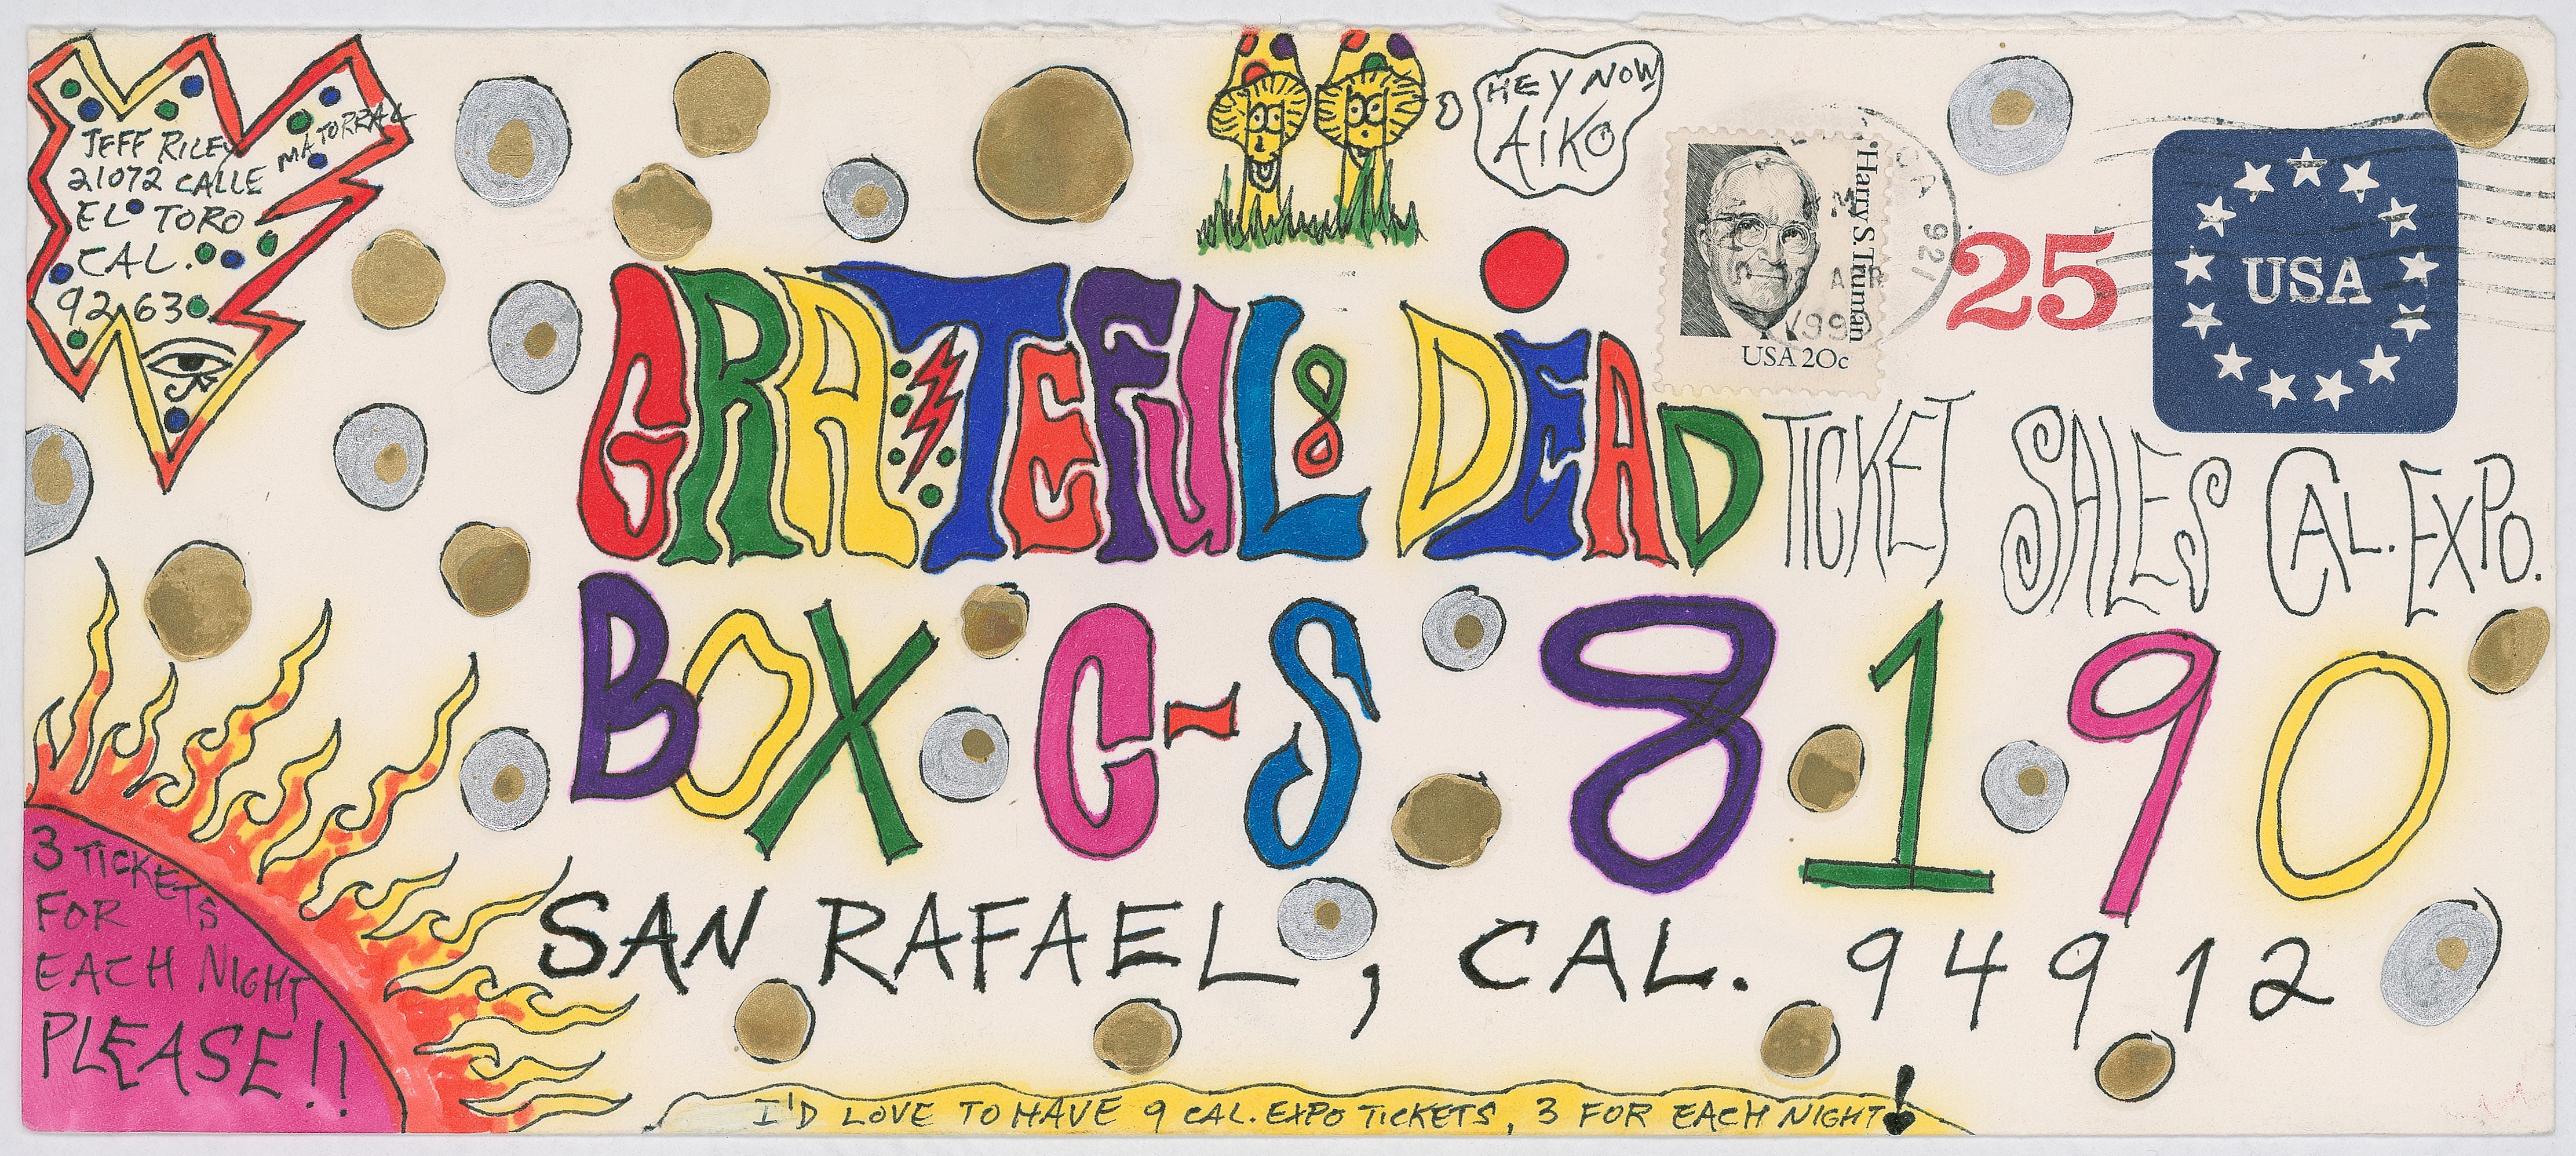 JEFF RILEY
21072 CALLE MATORRAL
EL TORO
CAL.
92630
HEY NOW
AIKO
Harry S. Truman
USA 20c
APR
1990
CA 927
25
USA
GRATEFUL DEAD TICKET SALES CAL. EXPO.
BOX C-S 8190
SAN RAFAEL, CAL. 94912
3 TICKETS
FOR
EACH NIGHT
PLEASE!!
I'D LOVE TO HAVE 9 CAL. EXPO TICKETS, 3 FOR EACH NIGHT!